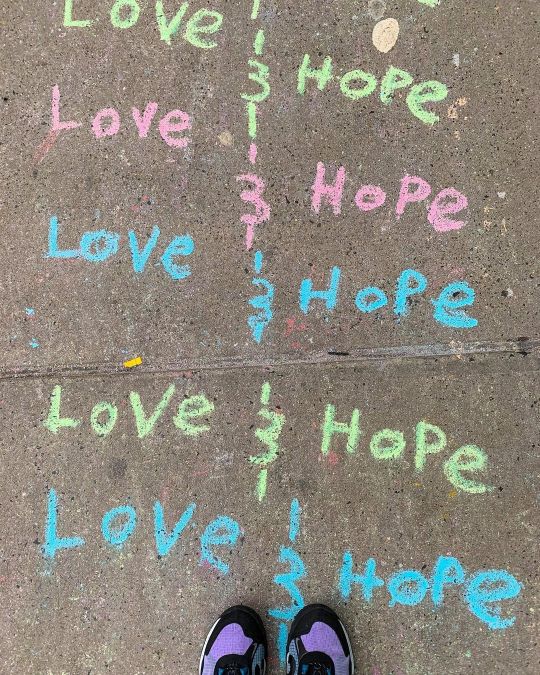 Love &
Hope
Love & Hope
Love & Hope
Love & Hope
Love & Hope